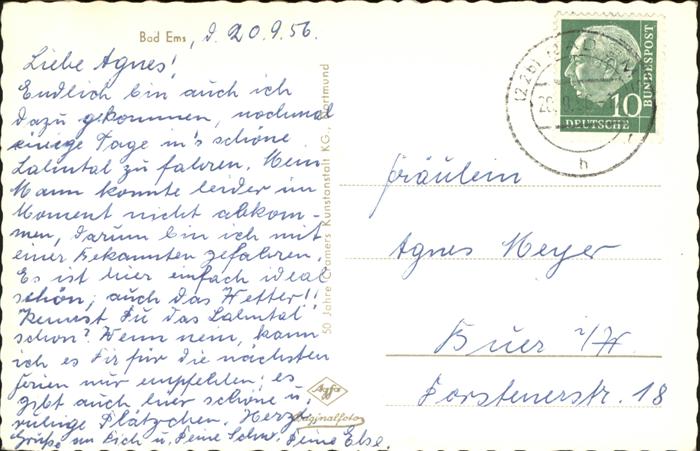 Bad Ems, d. 20.9.56.
Liebe Agnes!
Endlich bin auch ich
dazu gekommen, nochmal
einige Tage in's schöne
Lahntal zu fahren. Mein
Mann konnte leider im
Moment nicht abkom-
men, darum bin ich mit
einer Bekannten gefahren.
Es ist hier einfach ideal
schön, auch das Wetter!!
Kennst Du das Lahntal
schon? Wenn nein, kann
ich es Dir für die nächsten
Ferien nur empfehlen; es
gibt auch hier schöne u.
ruhige Plätzchen. Herzl.
Grüße an Dich u. Deine Schw. Deine Else.
50 Jahre Cramers Kunstanstalt KG., Dortmund
Agfa
Originalfoto
(22b)
10
DEUTSCHE
BUNDESPOST
h
Fräulein
Agnes Meyer
Buer i/W.
Forstenerstr. 18